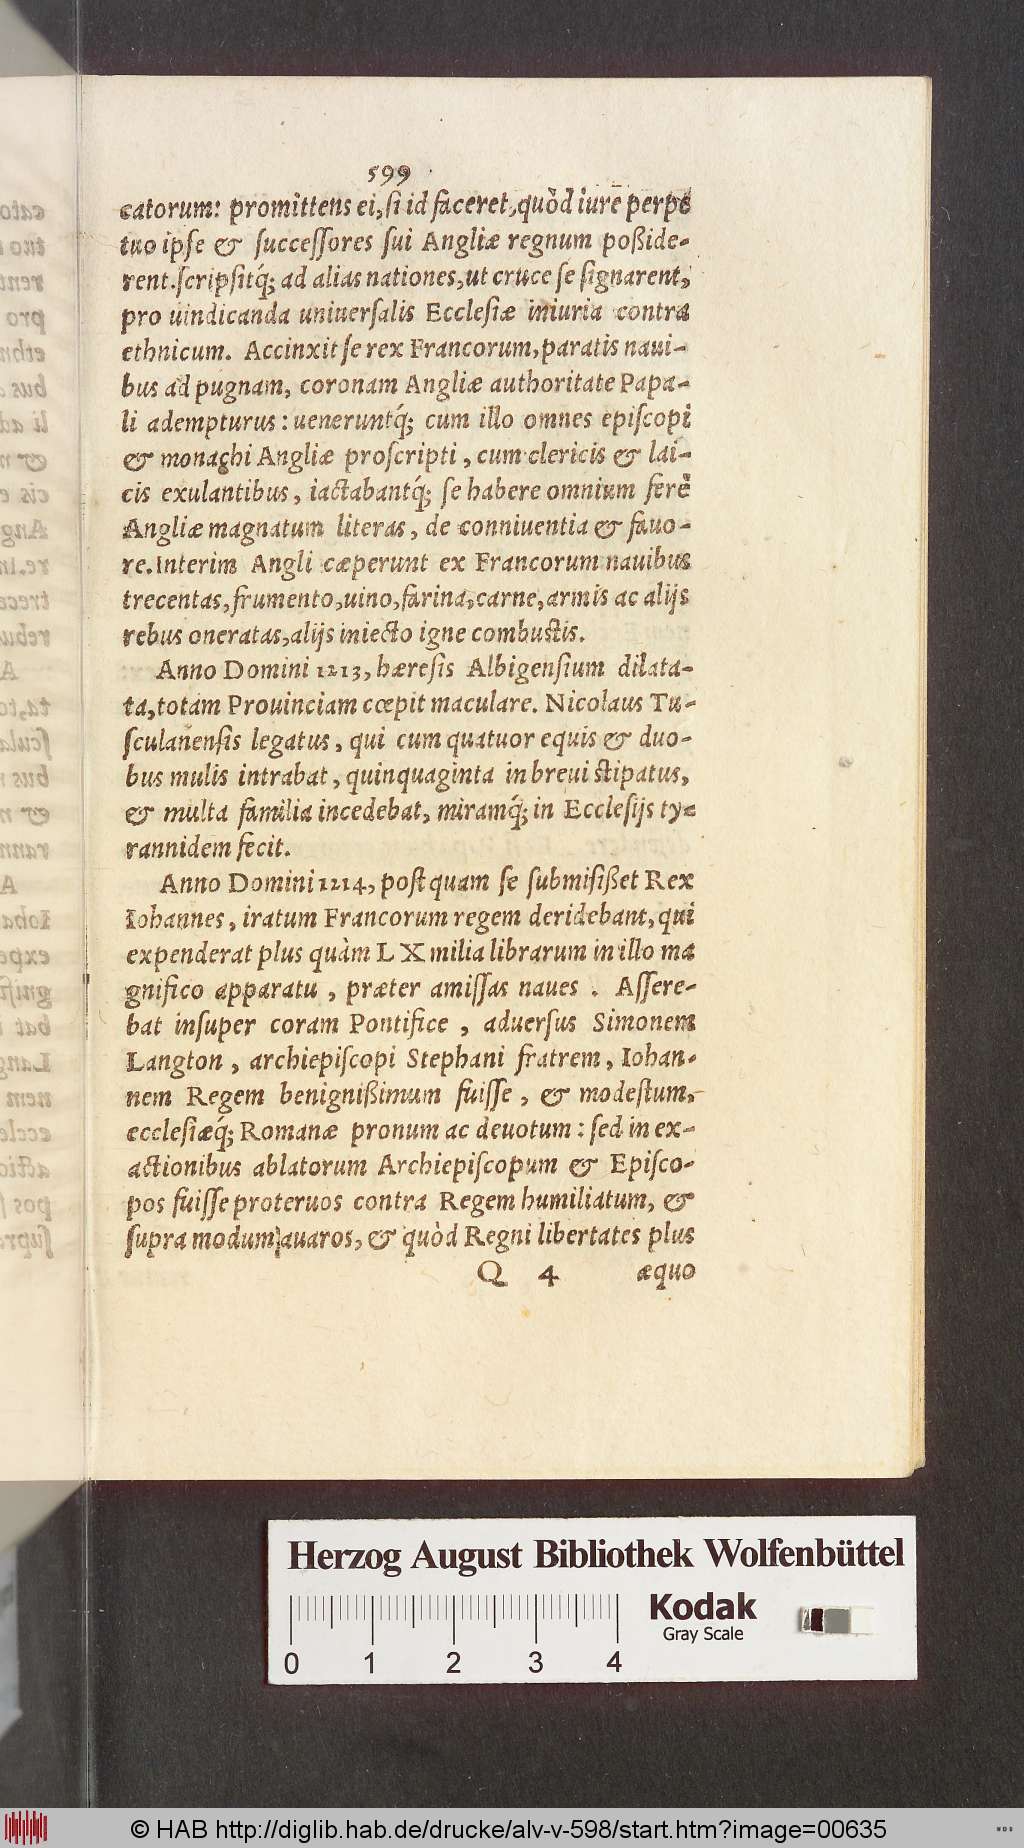 599
catorum: promittens ei, ſi id faceret, quòd iure perpe
tuo ipſe & ſucceſſores ſui Angliæ regnum poßide-
rent. ſcripſitq́; ad alias nationes, ut cruce ſe ſignarent,
pro uindicanda uniuerſalis Eccleſiæ iniuria contra
ethnicum. Accinxit ſe rex Francorum, paratis naui-
bus ad pugnam, coronam Angliæ authoritate Papa-
li adempturus: ueneruntq́; cum illo omnes epiſcopi
& monachi Angliæ proſcripti, cum clericis & lai-
cis exulantibus, iactabantq́; ſe habere omnium ferè
Angliæ magnatum literas, de conniuentia & fauo-
re. Interim Angli cæperunt ex Francorum nauibus
trecentas, frumento, uino, farina, carne, armis ac alijs
rebus oneratas, alijs iniecto igne combuſtis.
Anno Domini 1213, hæreſis Albigenſium dilata-
ta, totam Prouinciam cœpit maculare. Nicolaus Tu-
ſculanenſis legatus, qui cum quatuor equis & duo-
bus mulis intrabat, quinquaginta in breui ſtipatus,
& multa familia incedebat, miramq́; in Eccleſijs ty-
rannidem fecit.
Anno Domini 1214, poſtquam ſe ſubmiſißet Rex
Iohannes, iratum Francorum regem deridebant, qui
expenderat plus quàm L X milia librarum in illo ma
gnifico apparatu, præter amiſſas naues. Aſſere-
bat inſuper coram Pontifice, aduerſus Simonem
Langton, archiepiſcopi Stephani fratrem, Iohan-
nem Regem benignißimum fuiſſe, & modeſtum,
eccleſiæq́; Romanæ pronum ac deuotum: ſed in ex-
actionibus ablatorum Archiepiſcopum & Epiſco-
pos fuiſſe proteruos contra Regem humiliatum, &
ſupra modum auaros, & quòd Regni libertates plus
Q 4 æquo
Herzog August Bibliothek Wolfenbüttel
Kodak
Gray Scale
0 1 2 3 4
© HAB http://diglib.hab.de/drucke/alv-v-598/start.htm?image=00635